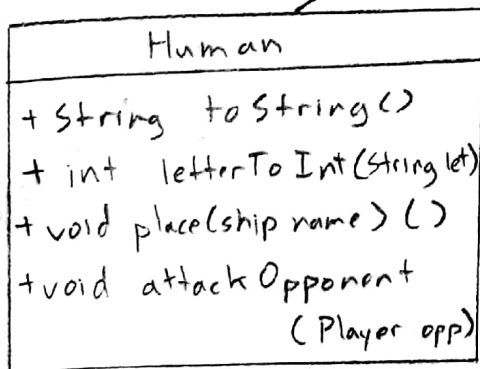 Human
+ String toString()
+ int letterToInt(String let)
+ void place(ship name) ()
+ void attackOpponent
(Player opp)